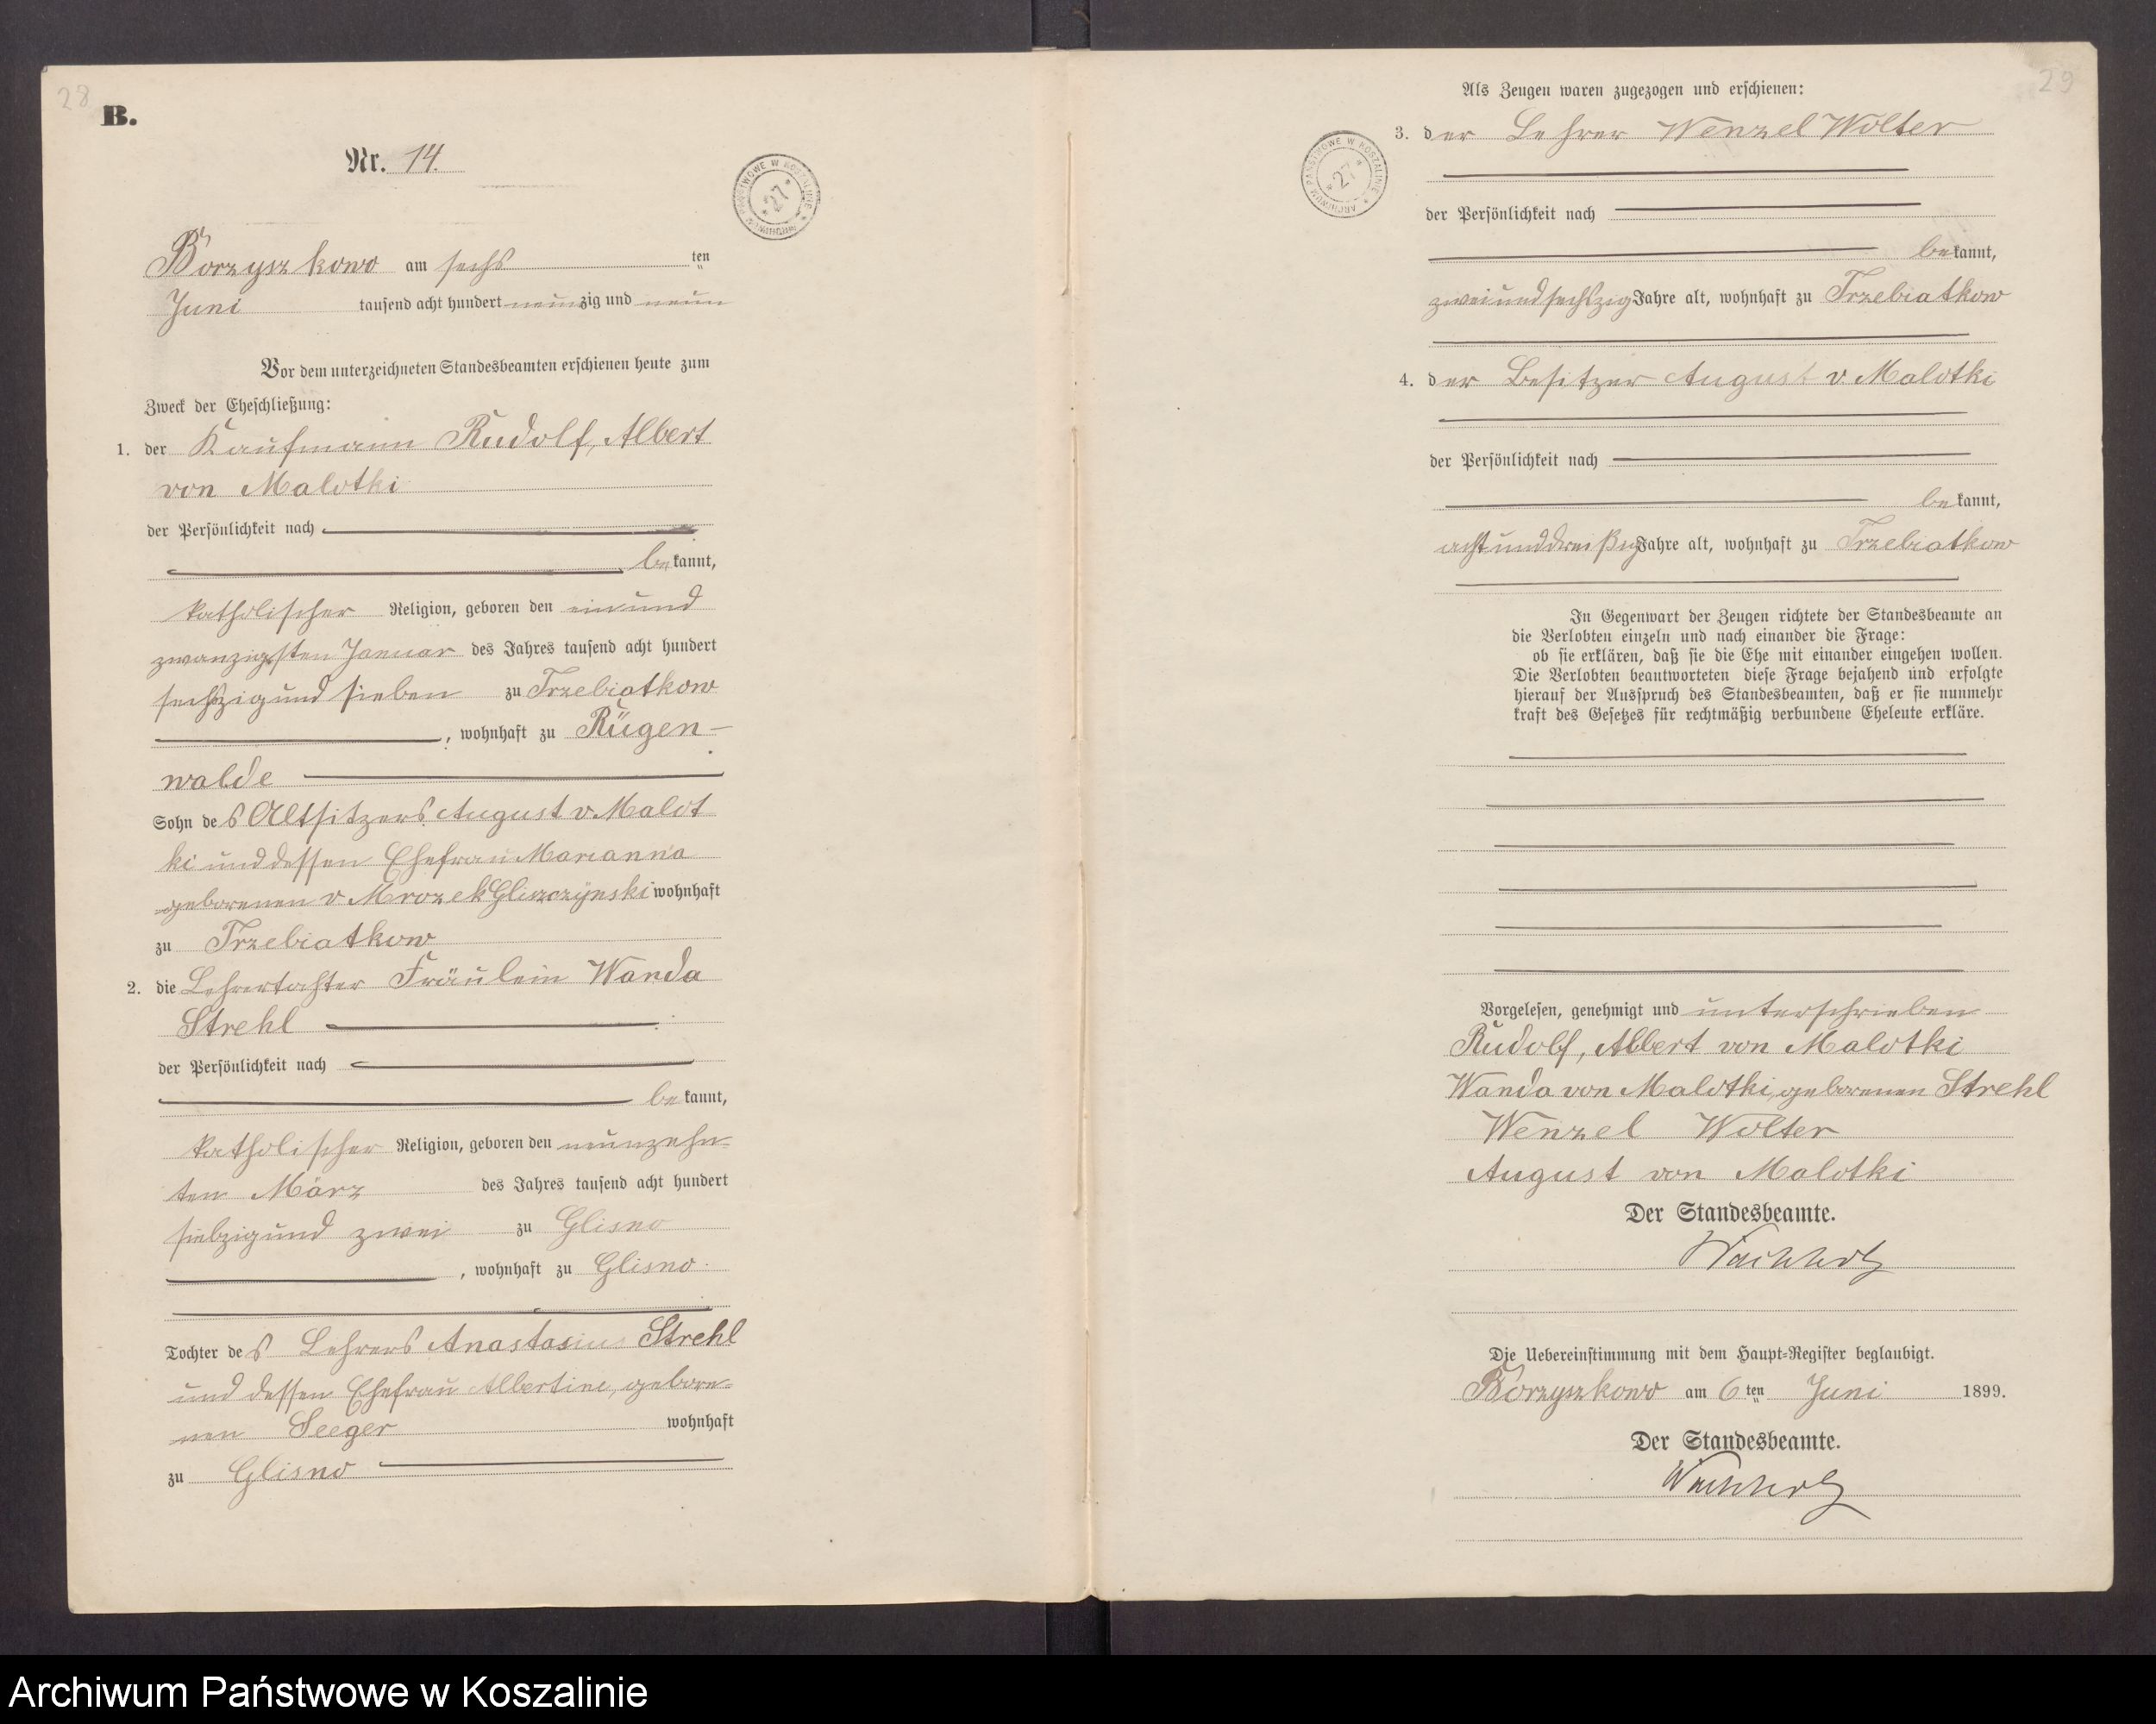 28
B.
Nr. 14.
ARCHIWUM PAŃSTWOWE W KOSZALINIE * 27 *
Borzyszkowo am sechs ten
Juni tausend acht hundert neunzig und neun
Vor dem unterzeichneten Standesbeamten erschienen heute zum
Zweck der Eheschließung:
1. der Kaufmann Rudolf, Albert
von Malotki
der Persönlichkeit nach
bekannt,
katholischer Religion, geboren den einund
zwanzigsten Januar des Jahres tausend acht hundert
sechszig und sieben zu Trzebiatkow
, wohnhaft zu Rügen-
walde
Sohn des Altsitzers August v. Malot
ki und dessen Ehefrau Marianna
geborenen v. Mrozek Gliszczynski wohnhaft
zu Trzebiatkow
2. die Lehrertochter Fräulein Wanda
Strehl
der Persönlichkeit nach
bekannt,
katholischer Religion, geboren den neunzehn-
ten März des Jahres tausend acht hundert
siebzig und zwei zu Glisno
, wohnhaft zu Glisno.
Tochter des Lehrers Anastasius Strehl
und dessen Ehefrau Albertine, gebore-
nen Seeger wohnhaft
zu Glisno
29
Als Zeugen waren zugezogen und erschienen:
ARCHIWUM PAŃSTWOWE W KOSZALINIE * 27 *
3. der Lehrer Wenzel Wolter
der Persönlichkeit nach
bekannt,
zweiundsechszig Jahre alt, wohnhaft zu Trzebiatkow
4. der Besitzer August v. Malotki
der Persönlichkeit nach
bekannt,
achtunddreißig Jahre alt, wohnhaft zu Trzebiatkow
In Gegenwart der Zeugen richtete der Standesbeamte an
die Verlobten einzeln und nach einander die Frage:
ob sie erklären, daß sie die Ehe mit einander eingehen wollen.
Die Verlobten beantworteten diese Frage bejahend und erfolgte
hierauf der Ausspruch des Standesbeamten, daß er sie nunmehr
kraft des Gesetzes für rechtmäßig verbundene Eheleute erkläre.
Vorgelesen, genehmigt und unterschrieben
Rudolf, Albert von Malotki
Wanda von Malotki, geborenen Strehl
Wenzel Wolter
August von Malotki
Der Standesbeamte.
Wachholz
Die Uebereinstimmung mit dem Haupt-Register beglaubigt.
Borzyszkowo am 6 ten Juni 1899.
Der Standesbeamte.
Wachholz
Archiwum Państwowe w Koszalinie